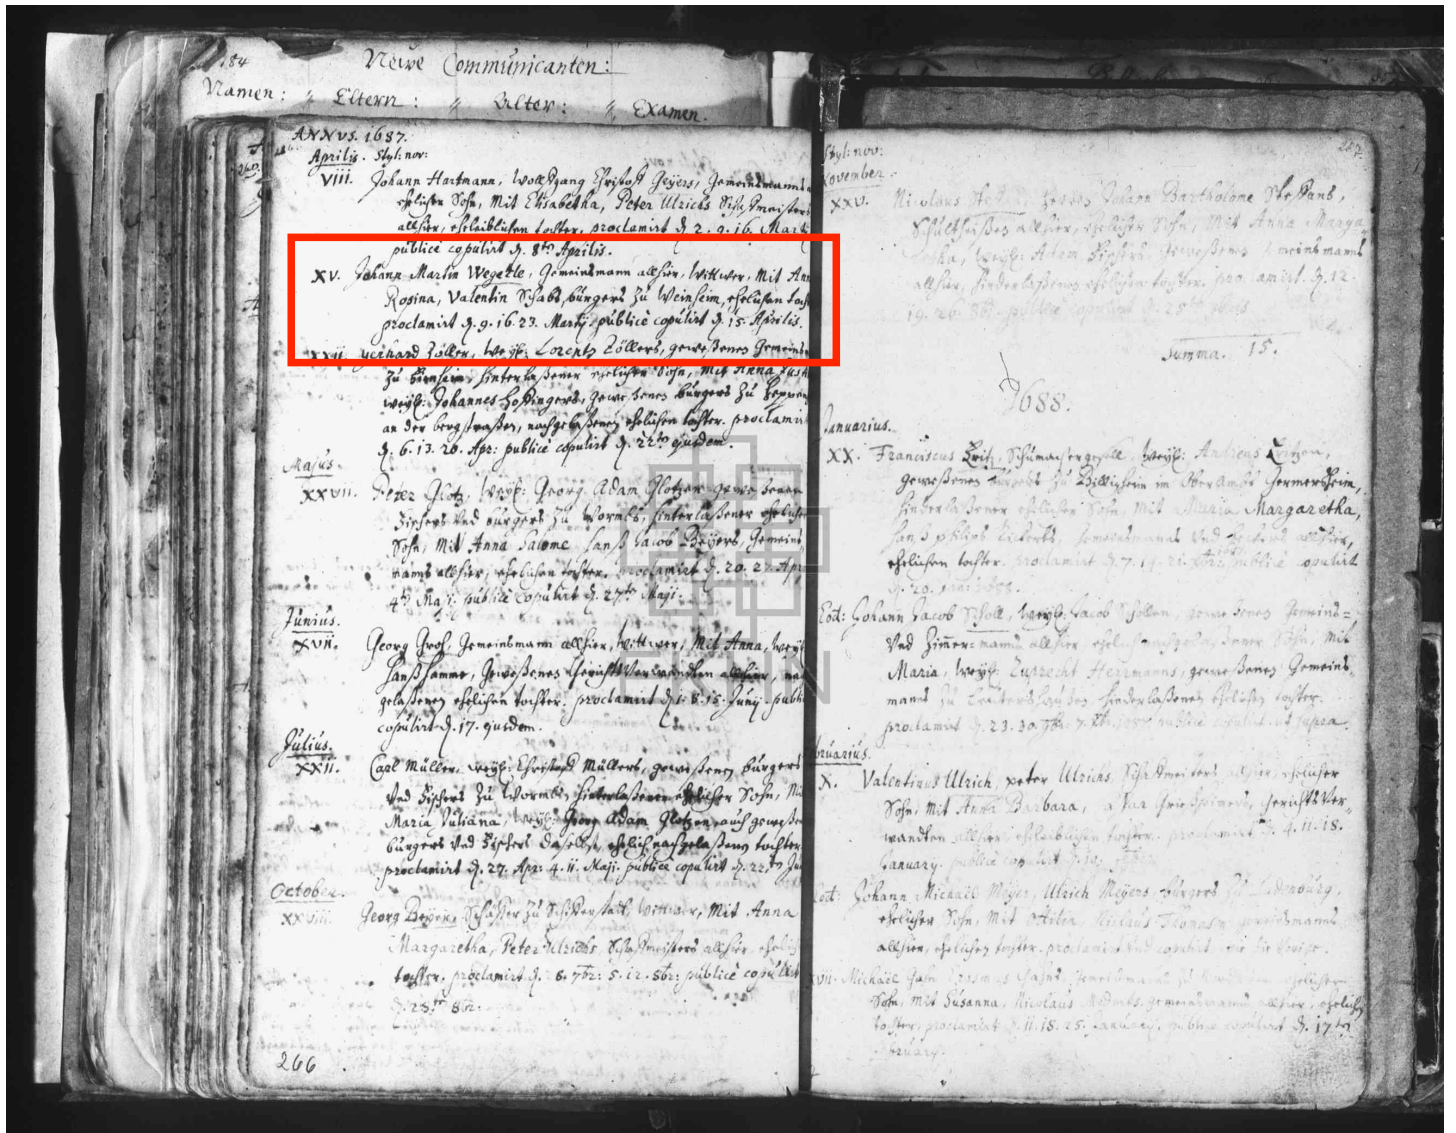 184
Newe Communicanten:
Namen: Eltern: Alter: Examen.
ANNVS. 1687.
Aprilis. Styl: nov:
VIII. Johann Hartmann, Wolffgang Christoff Geÿers, Gemeinsmanns
ehelicher Sohn, Mit Elisabetha, Peter Ulrichs Schafmeisters
allhier, eheleiblichen tochter, proclamirt d. 2. 9. 16. Martÿ
publicè copulirt d. 8ten Aprilis.
XV. Johann Martin Wegerle, Gemeinsmann allhier, Wittwer, Mit Ann
Rosina, Valentin Schabs, bürgers zu Weinheim, ehelichen toch
proclamirt d. 9. 16. 23. Martÿ. publicè copulirt d. 15. Aprilis.
XXII. Gerhard Zöller, Weÿl: Lorentz Zöllers, geweßenes Gemeins
zu hinterlaßener ehelicher Sohn, Mit Anna
weÿl: Johannes geweßenes bürgers zu Heppen
an der bergstraßen, nachgelaßenen ehelichen tochter. proclamir
d. 6. 13. 20. Apr: publicè copulirt d. 22ten ejusdem.
Majus.
XXVII. Peter Glotz, Weÿl: Georg Adam Glotzen geweßenen
Fischers Und bürgers zu Wormbs, hinterlaßener ehelicher
Sohn, Mit Anna Salome Hanß Jacob Beÿers, Gemeins
manns allhier, ehelichen tochter. proclamirt d. 20. 27. Apr
4ten Maji. publicè copulirt d. 27ten Maji.
Junius.
XVII. Georg Groß, Gemeinsmann allhier, Wittwer, Mit Anna, weÿl
Hanß geweßenes GerichtsVerwandten allhier, nach
gelaßenen ehelichen tochter. proclamirt d. 1. 8. 15. Junÿ. publi
copulirt d. 17. ejusdem.
Julius.
XXII. Carl Müller, weÿl: Christoff Müllers, geweßenen bürgers
Und Fischers zu Wormbs, hinterlaßener ehelicher Sohn, Mi
Maria Juliana, weÿl: Georg Adam Glotzen, auch geweßen
bürgers Und Fischers daselbst, ehelich nachgelaßene tochter
proclamirt d. 27. Apr: 4. 11. Maji. publicè copulirt d. 22ten Ju
October.
XXVIII. Georg Beÿer, Schäffer zu Wittwer, Mit Anna
Margaretha, Peter Ulrichs Schafmeisters allhier, ehelich
tochter. proclamirt d. 7br: 5. 12. 8br: publicè copulirt
d. 28ten 8br:
266
257
Styl: nov:
November.
XXV. Nicolaus Johann Bartholome Steffans,
Schultheißen allhier, ehelicher Sohn, Mit Anna Marga
retha, weÿl: Adam Fischers, geweßenes Gemeinsmanns
allhier, hinderlaßenen ehelichen tochter. proclamirt. d. 12.
19. 26. 8br. publicè copulirt d. 25
Summa. 15.
1688.
Januarius.
XX. Franciscus Critz, Schumachergesell, Weÿl: Andreas Critzen,
geweßenen zu Billigheim im OberAmbt Germersheim,
hinderlaßener ehelicher Sohn, Mit Maria Margaretha,
Hanß Philips Gemeinsmanns Und allhier,
ehelichen tochter. proclamirt d. 7. 14. 21. Xbr: publicè copulirt
d. 20. 1688.
Eod: Johann Jacob Scholl, weÿl: Jacob Schollen, geweßenen Gemeins=
Und Zimmer=manns allhier ehelich nachgelaßener Sohn, Mit
Maria, weÿl: Ruprecht Herrmanns, geweßenes Gemeins
manns zu Leutershaußen hinderlaßenen ehelichen tochter.
proclamirt d. 23. 30. 9br: 7. Xbr. publicè copulirt ut supra.
bruarius.
X. Valentinus Ulrich, peter Ulrichs, Schafmeisters allhier, ehelicher
Sohn, Mit Anna Barbara, GerichtsVer-
wandten allhier, eheleiblichen tochter. proclamirt d. 4. 11. 18.
January. publicè copulirt d. 10.
Eod: Johann Michaël Meÿer, Ulrich Meÿers, bürgers zu Ladenburg,
ehelicher Sohn, Mit Niclaus gemeinsmanns
allhier, ehelichen tochter. proclamirt Und copulirt wie die Vorige.
XVII. Michaël
Sohn, Mit Susanna, Nicolaus gemeinsmanns allhier, ehelichen
tochter. proclamirt d. 11. 18. 25. January. publicè copulirt d. 17ten
bruarÿ.